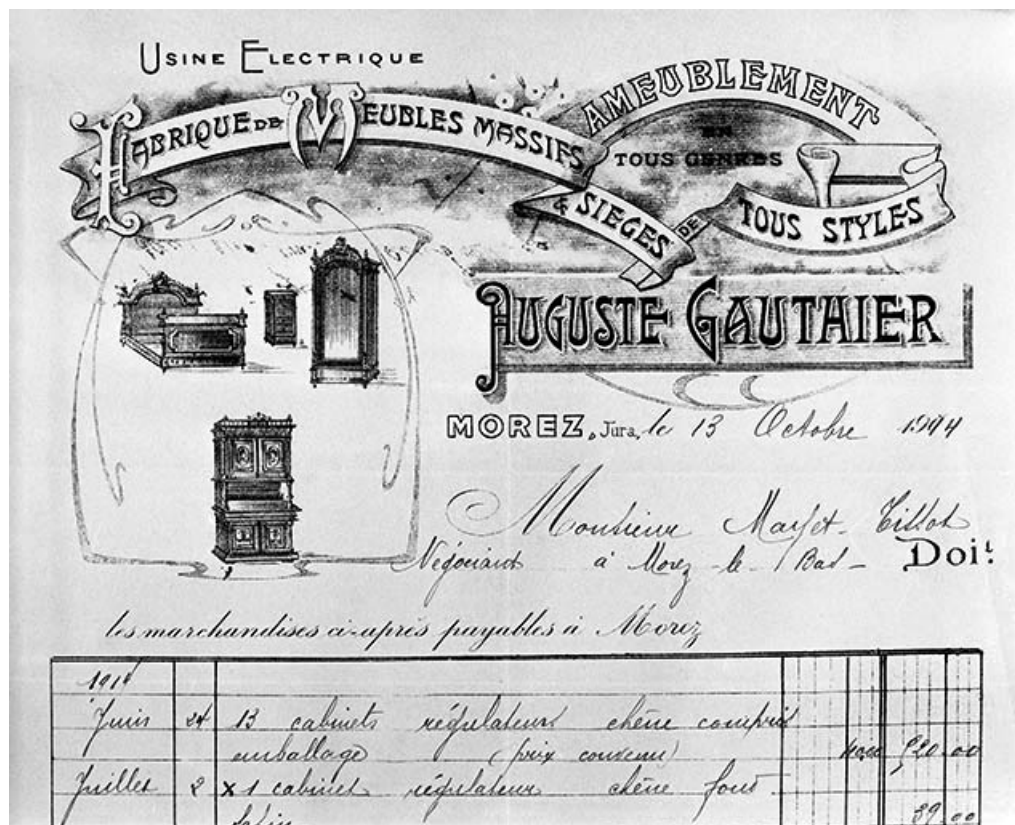 USINE ELECTRIQUE
FABRIQUE DE MEUBLES MASSIFS
AMEUBLEMENT
EN
TOUS GENRES
& SIEGES DE TOUS STYLES
AUGUSTE GAUTHIER
MOREZ, Jura, le 13 Octobre 1914
Monsieur Tissot
Négociant à Morez le Bas Doit
les marchandises ci-après payables à Morez
1914
Juin 24 13 cabinets régulateurs chêne compris
emballage (prix convenu) 40.00 520.00
Juillet 2 x 1 cabinet régulateur chêne
39.00